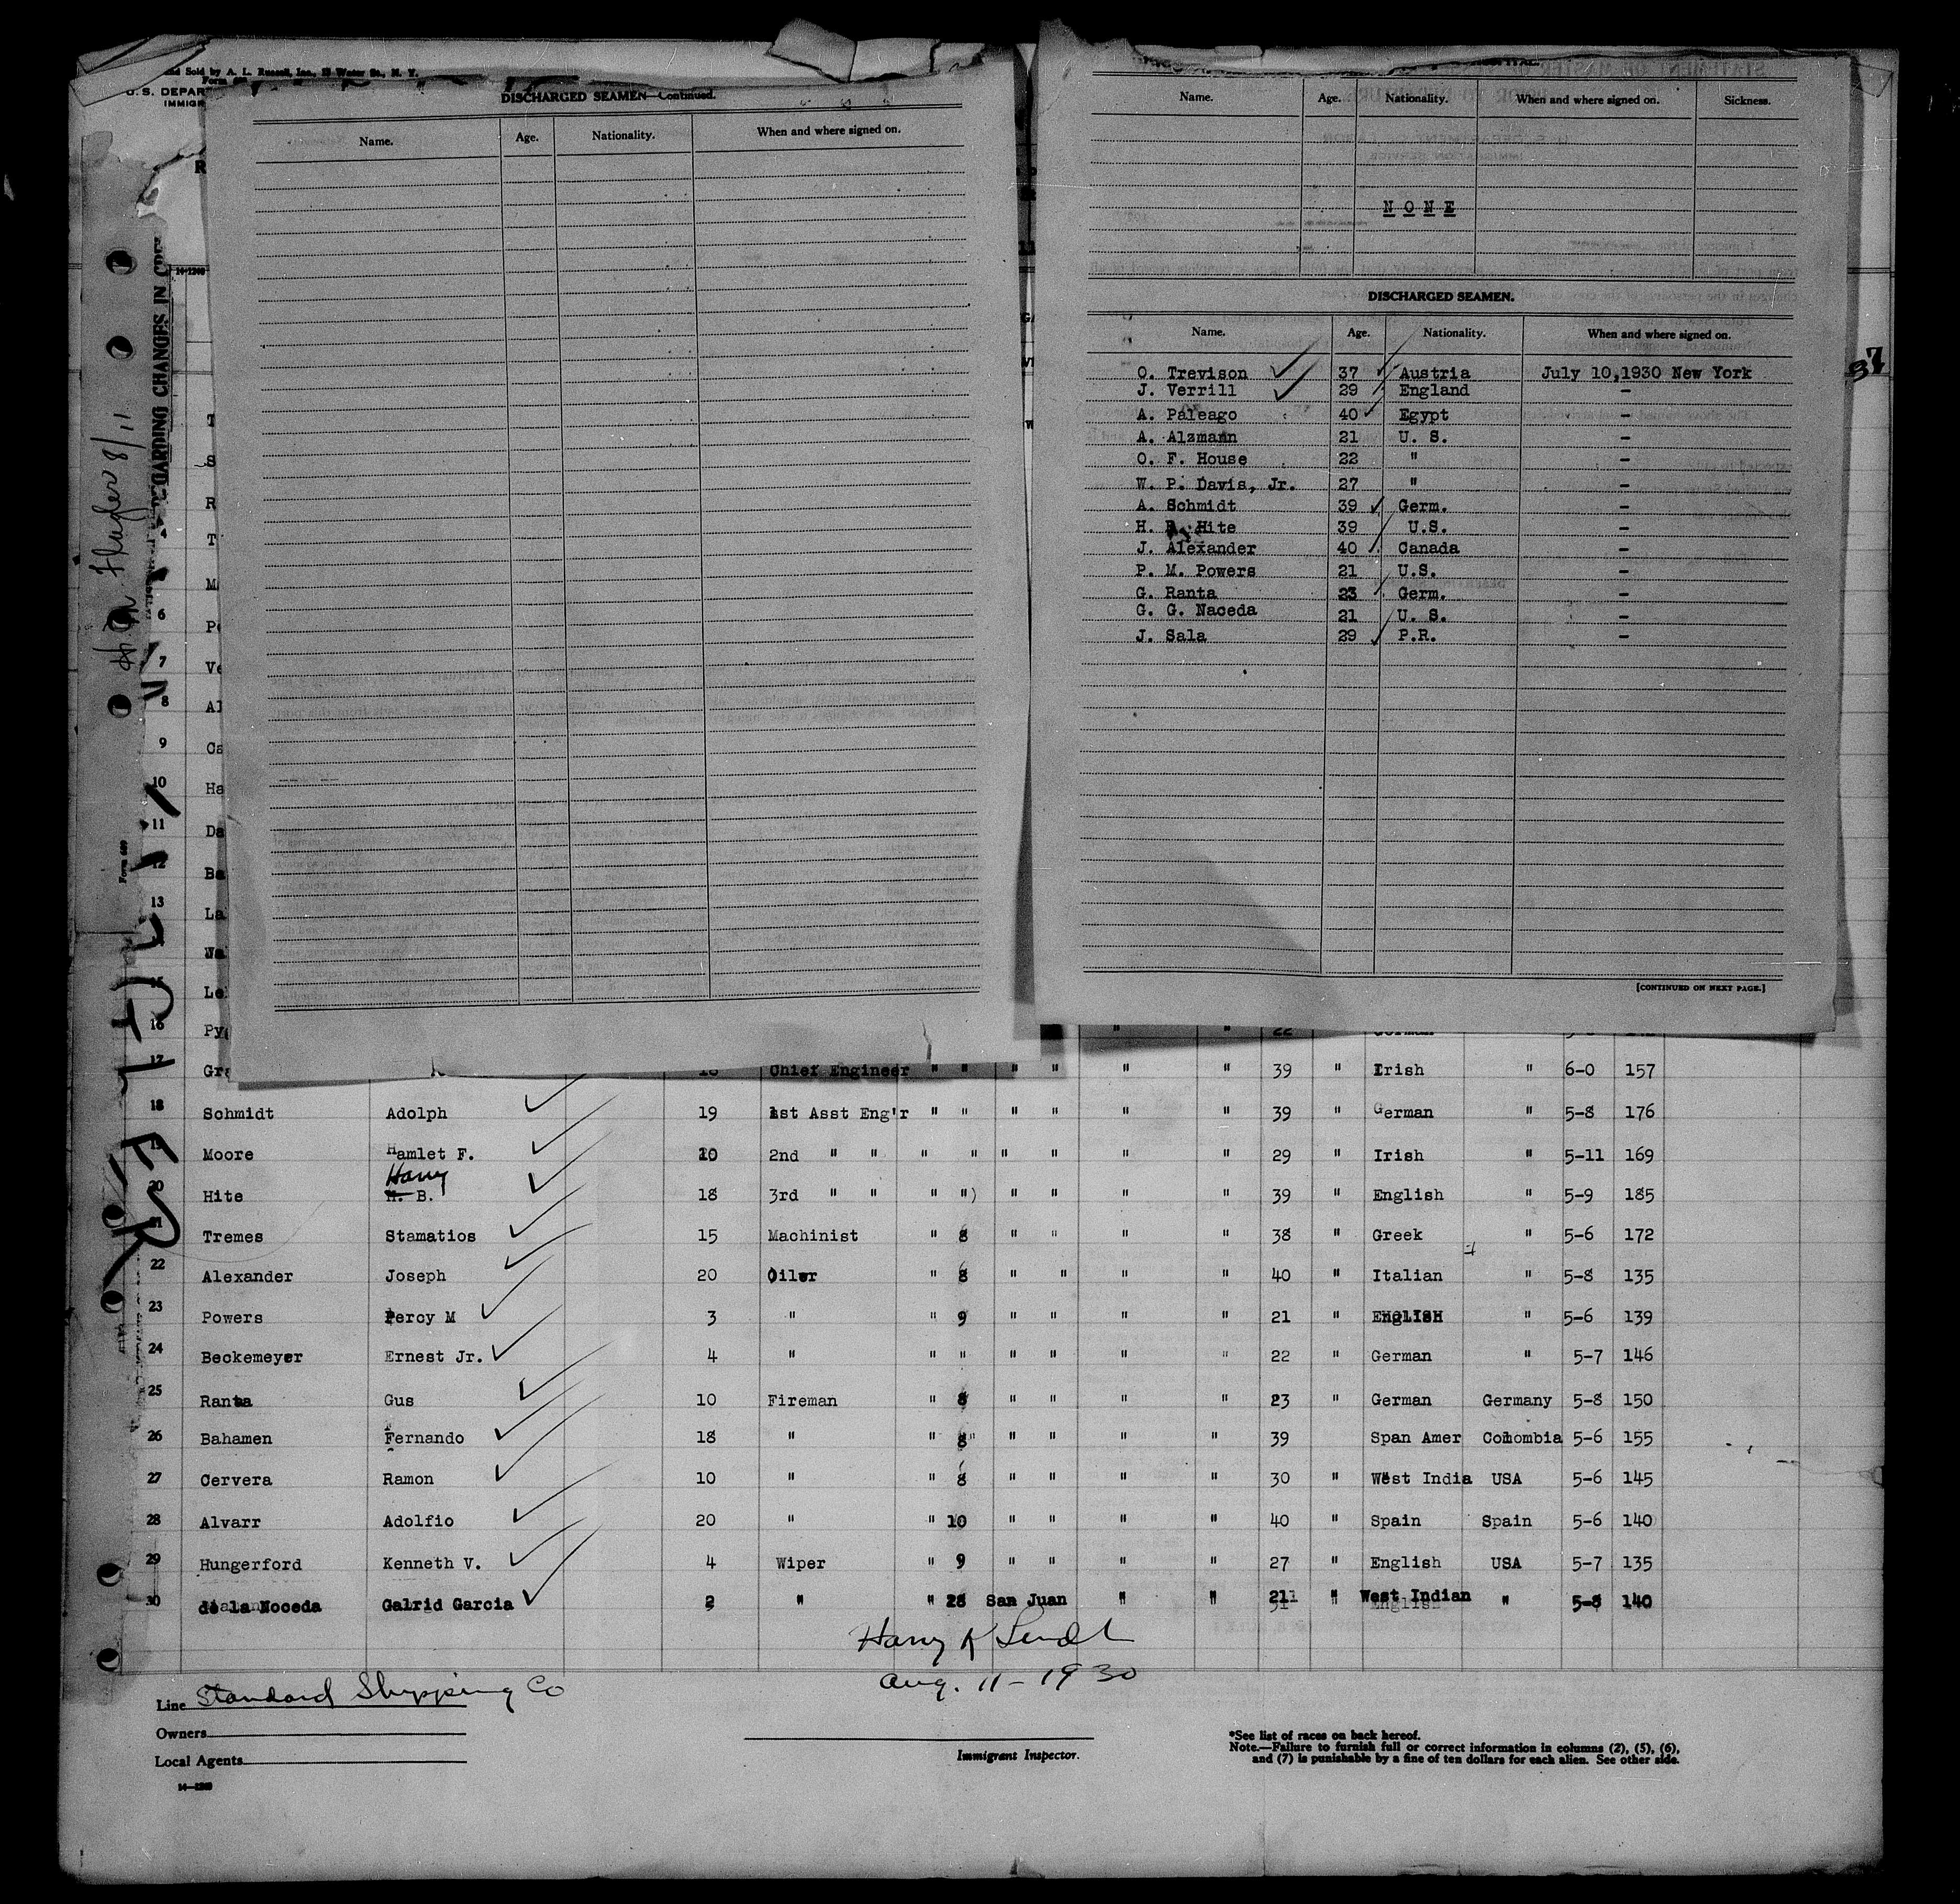 and Sold by A. L. Russell, Inc., 19 Water St., N. Y.
Form 689
U.S. DEPAR
IMMIGR
DISCHARGED SEAMEN—Continued.
Name. Age. Nationality. When and where signed on.
Name. Age. Nationality. When and where signed on. Sickness.
NONE
DISCHARGED SEAMEN.
Name. Age. Nationality. When and where signed on.
O. Trevison 37 Austria July 10,1930 New York
J. Verrill 29 England –
A. Paleago 40 Egypt –
A. Alzmann 21 U. S. –
O. F. House 22 " –
W. P. Davis, Jr. 27 " –
A. Schmidt 39 Germ. –
H. B. Hite 39 U.S. –
J. Alexander 40 Canada –
P. M. Powers 21 U.S. –
G. Ranta 23 Germ. –
G. G. Naceda 21 U. S. –
J. Sala 29 P.R. –
[CONTINUED ON NEXT PAGE.]
37
REGARDING CHANGES IN CREW
8/11
Form 689
4 T
6 Pe
7 Ve
8 Al
9 Ca
10 Ha
11 Da
12 Ba
13 La
Wa
Le
16 Py " " 22 German
17 Gra 18 Chief Engineer " " " " " " 39 " Irish " 6-0 157
18 Schmidt Adolph 19 1st Asst Eng'r " " " " " " 39 " German " 5-8 176
19 Moore Hamlet F. 20 2nd " " " " " " " " 29 " Irish " 5-11 169
Harry
20 Hite H. B. 18 3rd " " " ") " " " " 39 " English " 5-9 185
21 Tremes Stamatios 15 Machinist " 8 " " " " 38 " Greek " 5-6 172
22 Alexander Joseph 20 Oiler " 8 " " " " 40 " Italian " 5-8 135
23 Powers Percy M 3 " " 9 " " " " 21 " ENGLISH " 5-6 139
24 Beckemeyer Ernest Jr. 4 " " " " " " " 22 " German " 5-7 146
25 Ranta Gus 10 Fireman " 8 " " " " 23 " German Germany 5-8 150
26 Bahamen Fernando 18 " " 8" " " " " 39 " Span Amer Colombia 5-6 155
27 Cervera Ramon 10 " " 8 " " " " 30 " West India USA 5-6 145
28 Alvarr Adolfio 20 " " 10 " " " " 40 " Spain Spain 5-6 140
29 Hungerford Kenneth V. 4 Wiper " 9 " " " " 27 " English USA 5-7 135
30 de la Noceda Galrid Garcia 2 " " 28 San Juan " " 21 " West Indian " 5-8 140
Harry K
Aug. 11-1930
Line Standard Shipping Co
Owners
Local Agents
Immigrant Inspector.
*See list of races on back hereof.
Note.—Failure to furnish full or correct information in columns (2), (5), (6),
and (7) is punishable by a fine of ten dollars for each alien. See other side.
14—1240